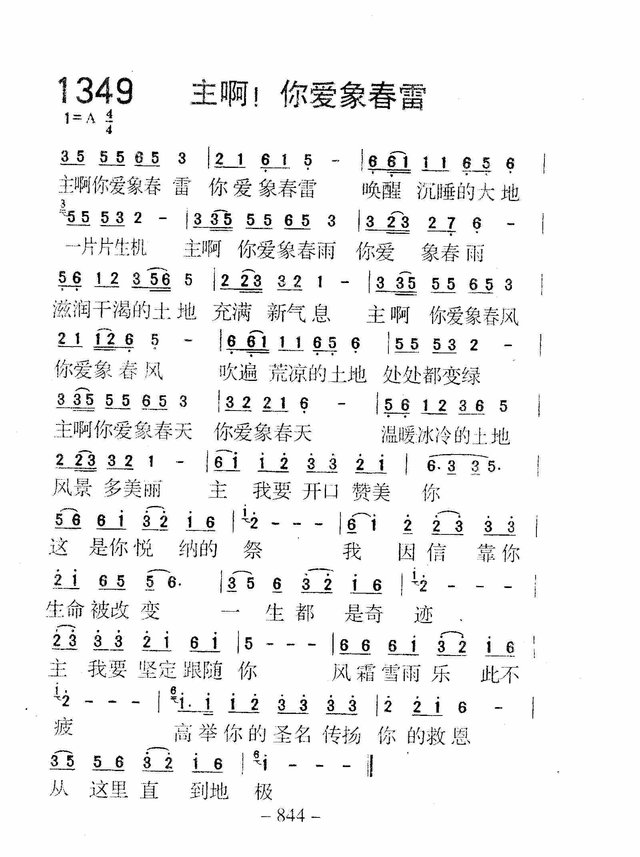 1349 主啊！你爱象春雷
1=A 4/4
35 55 65 3 | 21 61 5 - | 661 11 65 5 |
主啊你爱象春 雷 你 爱 象春雷 唤醒 沉睡的大地
3 55 532 - | 335 55 65 3 | 323 27 6 - |
一片片生机 主啊 你爱象春雨 你爱 象春雨
56 12 3 56 5 | 2 23 32 1 - | 335 55 65 3 |
滋润干渴的土地 充满 新气息 主啊 你爱象春风
21 12 6 5 - | 6 61 11 65 6 | 55 53 2 - |
你爱象春风 吹遍 荒凉的土地 处处都变绿
335 55 65 3 | 32 21 6 - | 56 12 36 5 |
主啊你爱象春天 你爱象春天 温暖冰冷的土地
2 23 32 1 - | 61 12 33 21 | 6· 3 35· |
风景 多美丽 主 我要 开口 赞美 你
56 61 32 16 | 12 - - - | 61 12 23 33 |
这 是你悦 纳的 祭 我 因信 靠你
21 65 56· | 35 56 32 16 | 12 - - - |
生命被改 变 一 生都 是奇 迹
23 33 21 61 | 5 - - - | 56 61 32 16 |
主 我要 坚定 跟随 你 风霜雪雨乐 此不
12 - - - | 61· 12 33 33 | 22 16 - |
疲 高举你的圣名传扬 你的救恩
35 56 32 16 | 61 - - ‖
从 这里 直 到地 极
- 844 -